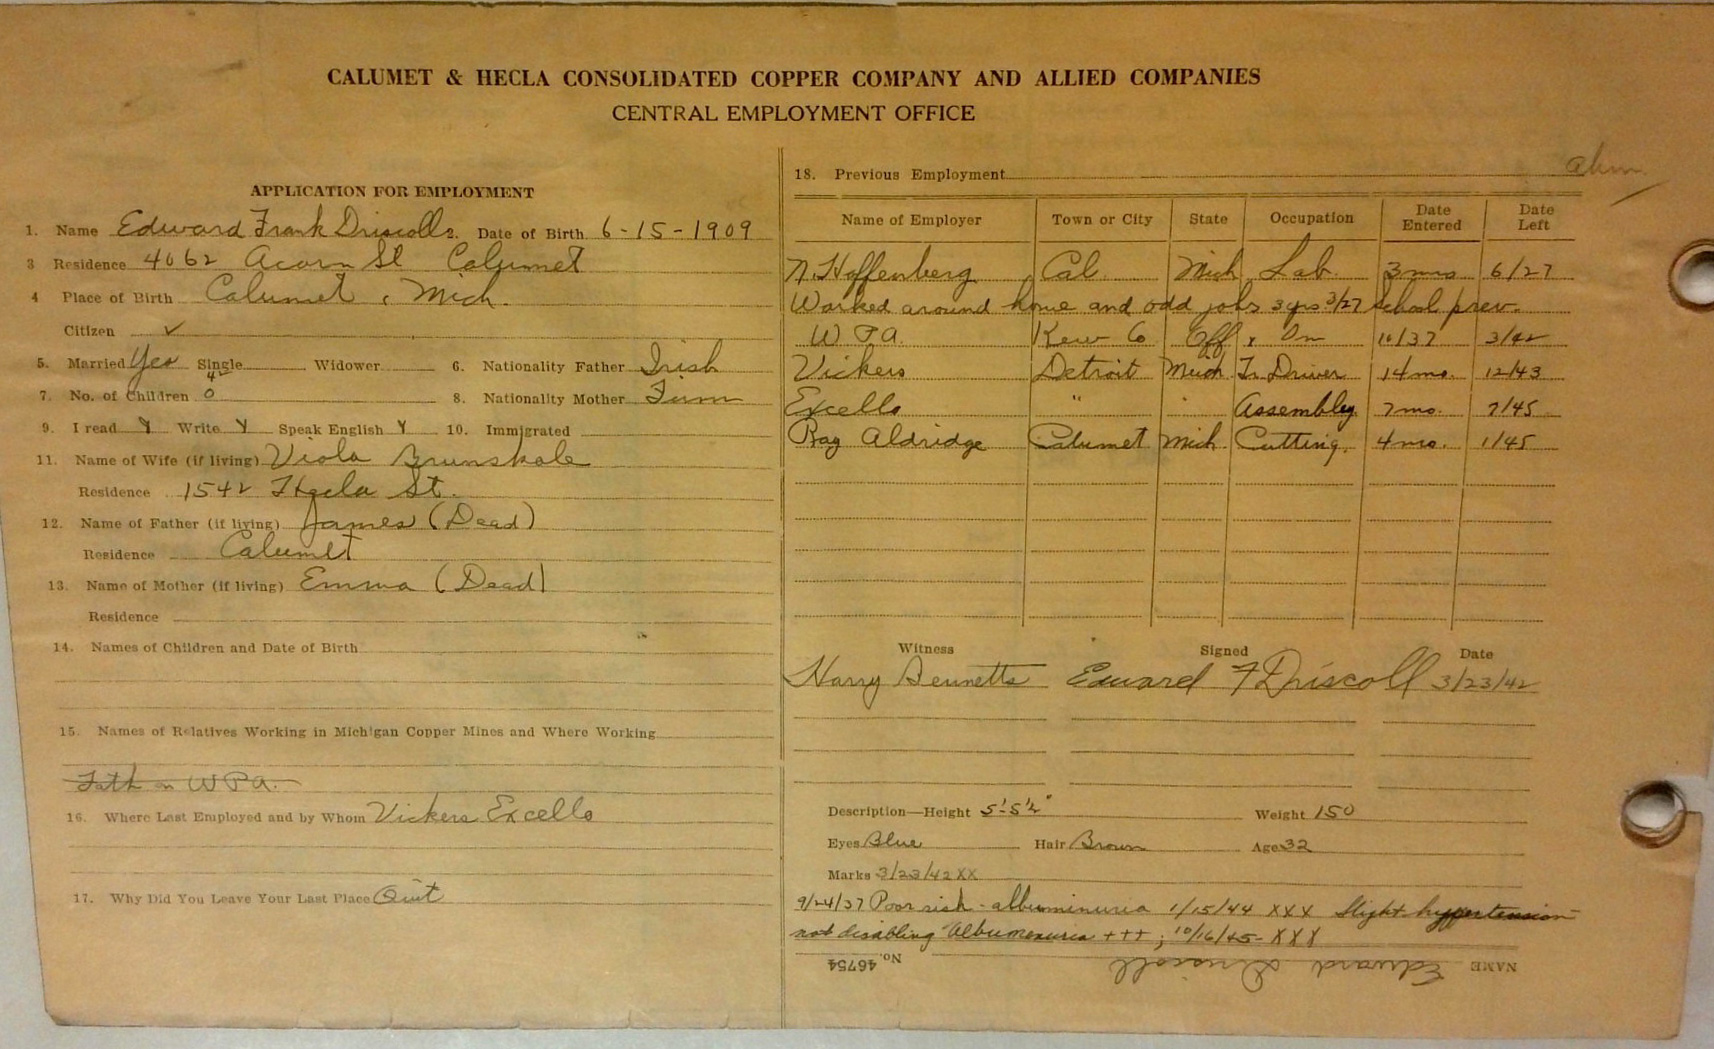 CALUMET & HECLA CONSOLIDATED COPPER COMPANY AND ALLIED COMPANIES
CENTRAL EMPLOYMENT OFFICE
APPLICATION FOR EMPLOYMENT
1. Name Edward Frank Driscoll 2. Date of Birth 6-15-1909
3 Residence 4062 Acorn St Calumet
4 Place of Birth Calumet, Mich.
Citizen ✓
5. Married Yes Single Widower 6. Nationality Father Irish
7. No. of Children 0 8. Nationality Mother Finn
9. I read Y Write Y Speak English Y 10. Immigrated
11. Name of Wife (if living) Viola Brunskole
Residence 1542 Hecla St.
12. Name of Father (if living) James (Dead)
Residence Calumet
13. Name of Mother (if living) Emma (Dead)
Residence
14. Names of Children and Date of Birth
15. Names of Relatives Working in Michigan Copper Mines and Where Working
Fath on WPA.
16. Where Last Employed and by Whom Vickers Excello
17. Why Did You Leave Your Last Place Quit
18. Previous Employment
Name of Employer Town or City State Occupation Date Entered Date Left
N. Hoffenberg Cal. Mich Lab. 3 mos 6/27
Worked around home and odd jobs 3 yrs 3/27 School prev.
W P A. Kew Co Off & On 10/37 3/42
Vickers Detroit Mich Tr. Driver 14 mo. 12/43
Excello " " Assembley 7 mo. 7/45
Ray Aldridge Calumet Mich Cutting 4 mo. 1/45
Witness Signed Date
Harry Bennetts Edward F Driscoll 3/23/42
Description—Height 5'-5½" Weight 150
Eyes Blue Hair Brown Age 32
Marks 3/23/42 XX
9/24/37 Poor risk - albuminuria 1/15/44 XXX Slight hypertension
not disabling Albumenuria +++; 10/16/45- XXX
NAME Edward Driscoll No. 46754